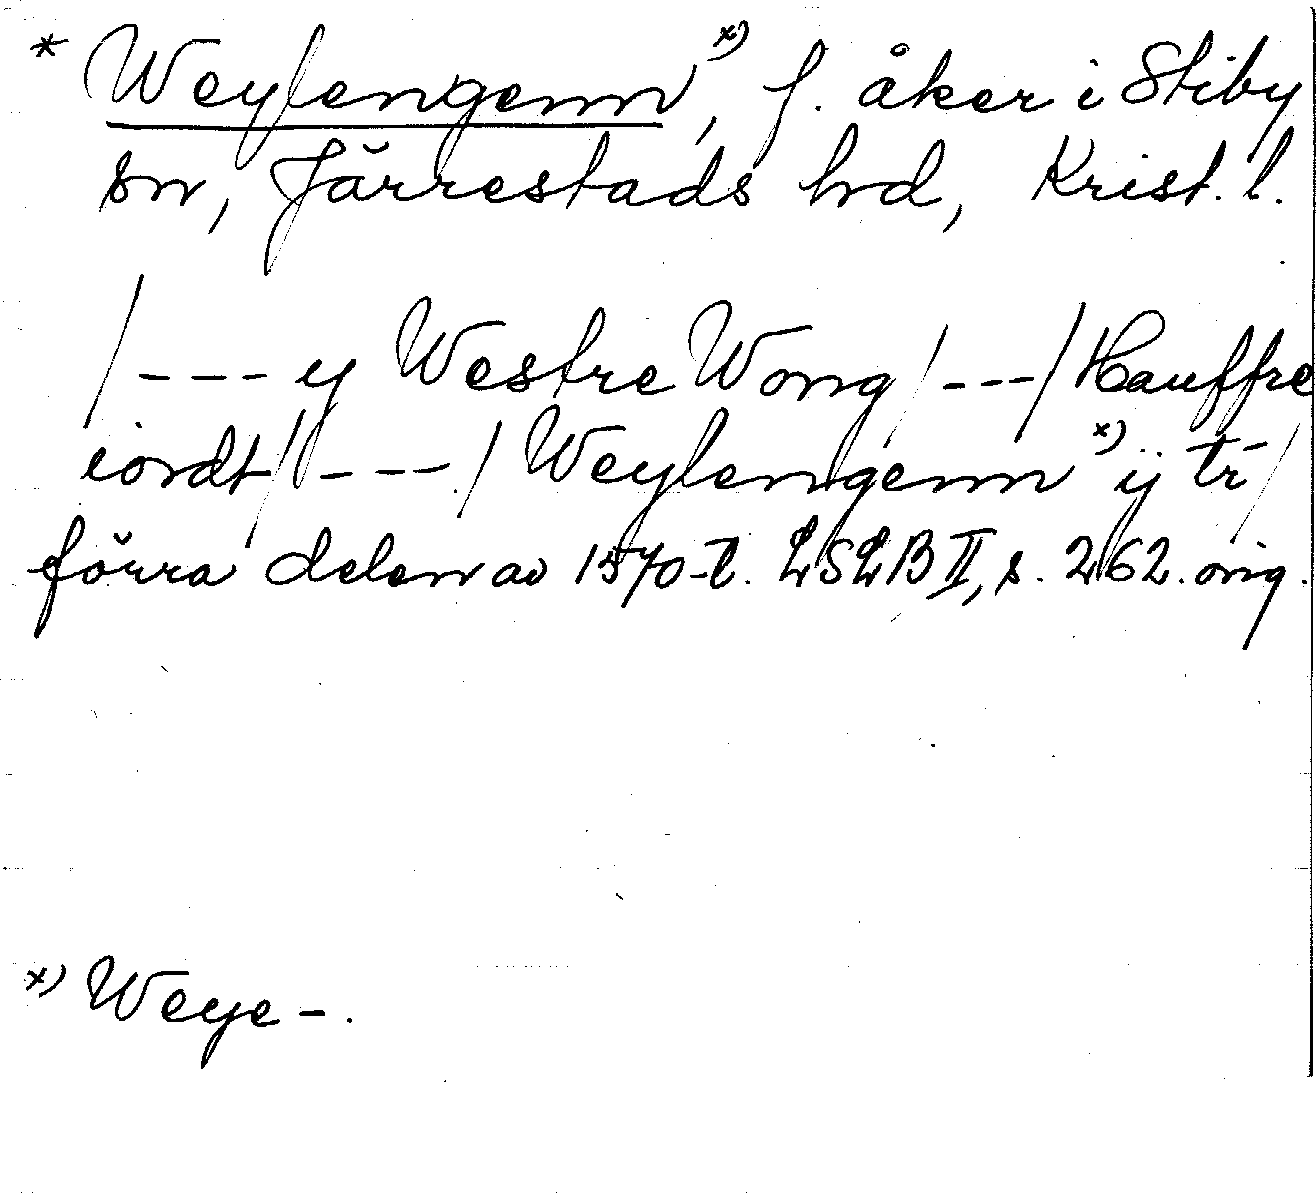 * Weylengenn x), f. åker i Stiby
sn, Järrestads hd, Krist. l.
/--- y Westre Wong/---/Hauffre
iordt/ /---/ Weylengenn x) ÿ tr /
förra delen av 1570-t. LSLB II, s. 262. orig.
x) Weye-.